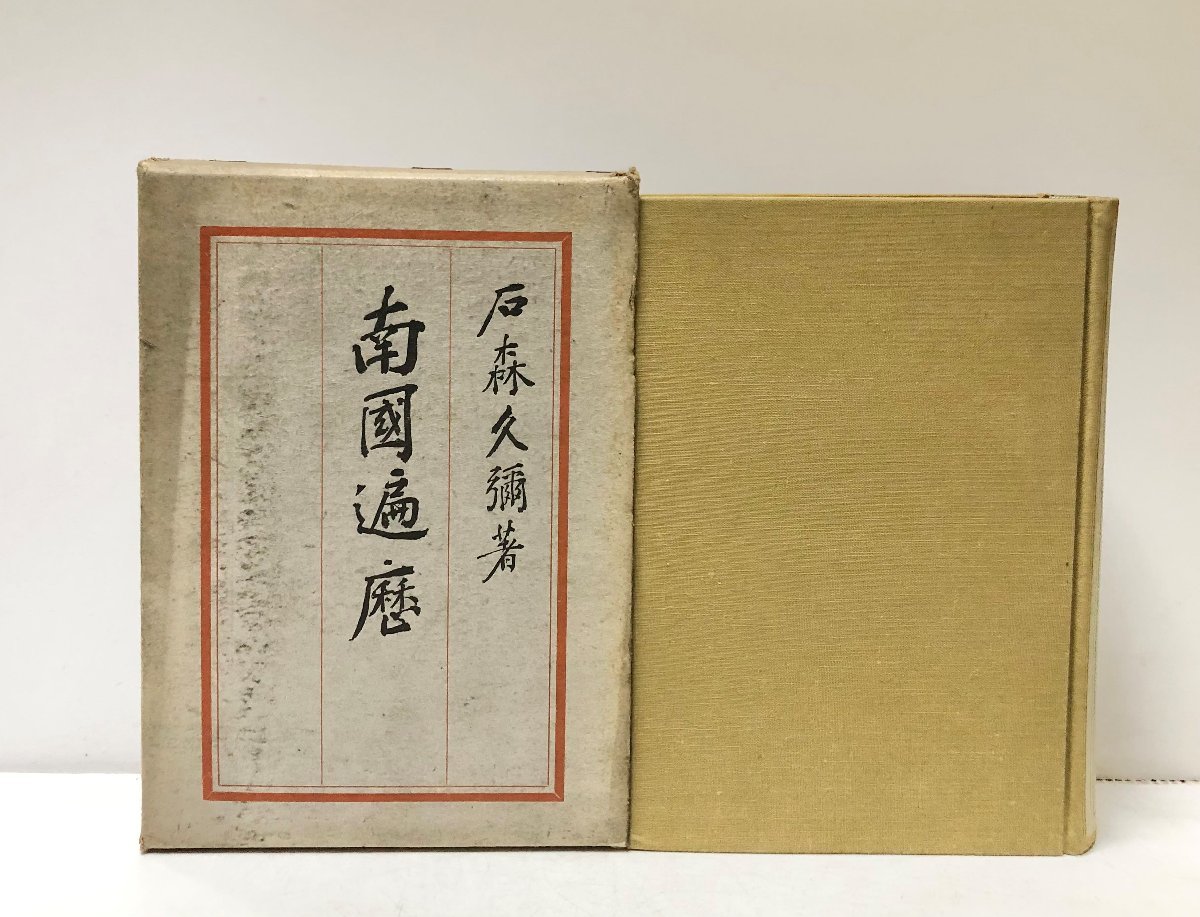 石森久彌著
南國遍歴